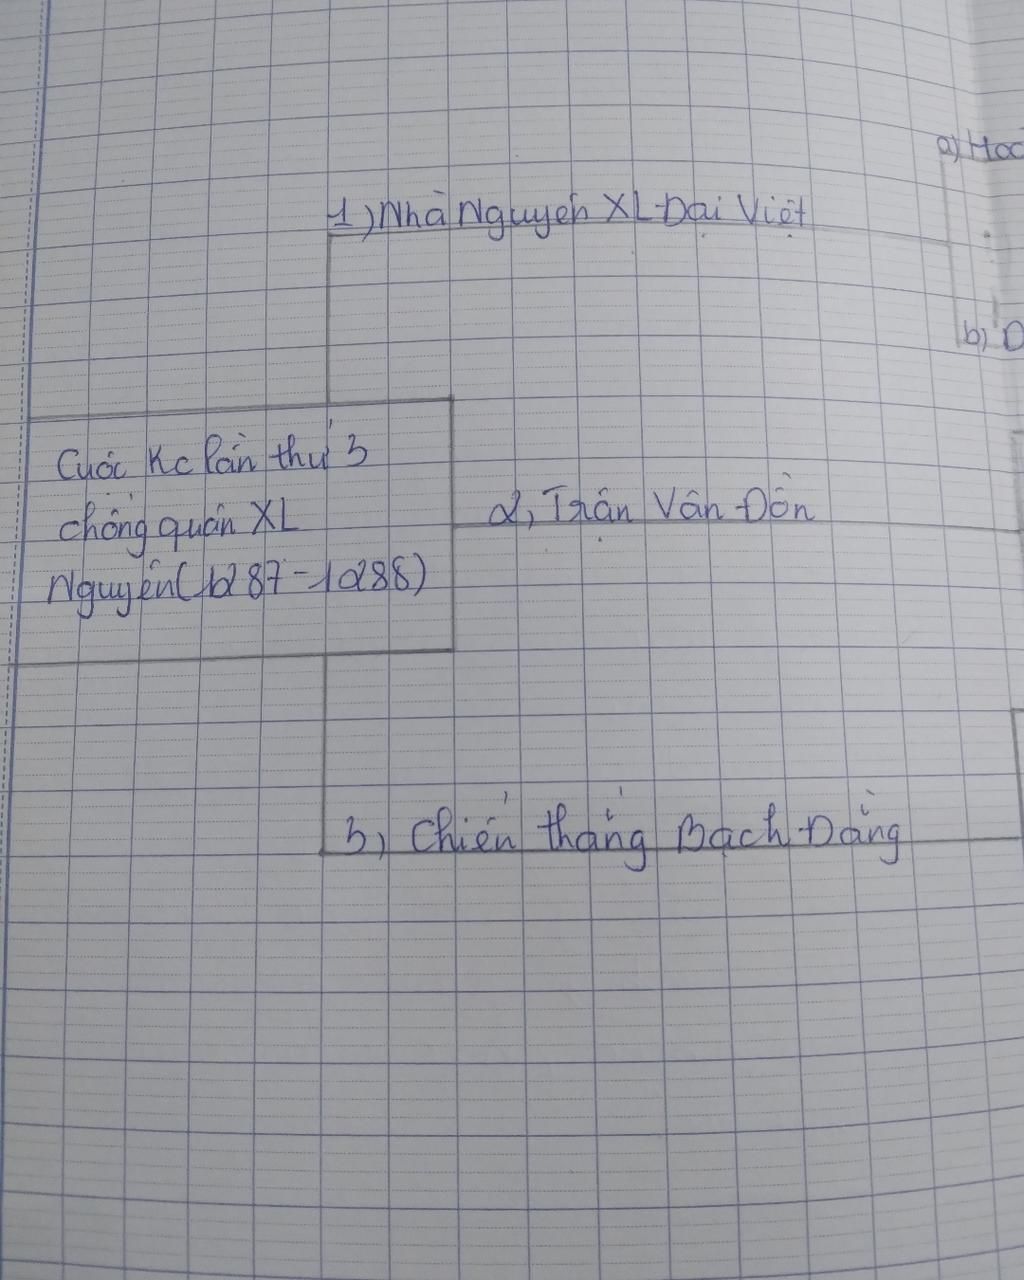 a) Hoc
1) Nhà Nguyên XL Đại Việt
b) D
Cuộc Kc lần thứ 3
chống quân XL
Nguyên (1287-1288)
2, Trận Vân Đồn
3, Chiến thắng Bạch Đằng